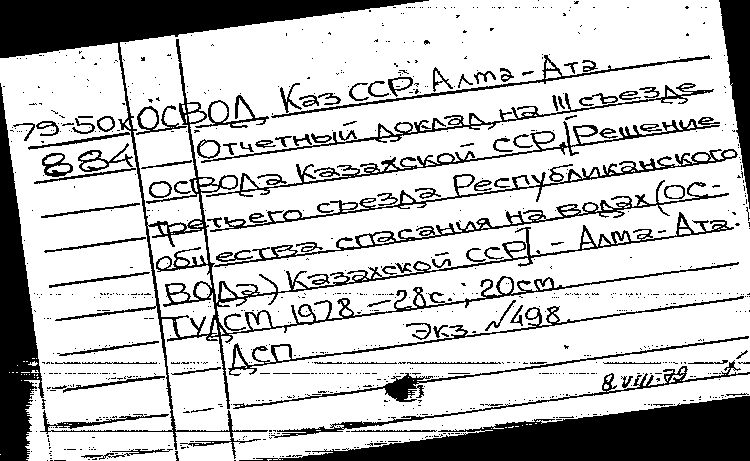 79-50к ОСВОД КазССР. Алма-Ата.
884 Отчетный доклад на III съезде
ОСВОДа Казахской ССР, [Решение
третьего съезда Республиканского
общества спасания на водах (ОС-
ВОДа) Казахской ССР]. - Алма-Ата:
ТУДСМ, 1978. - 28с. ; 20см.
ДСП Экз. №498.
8.VIII-79